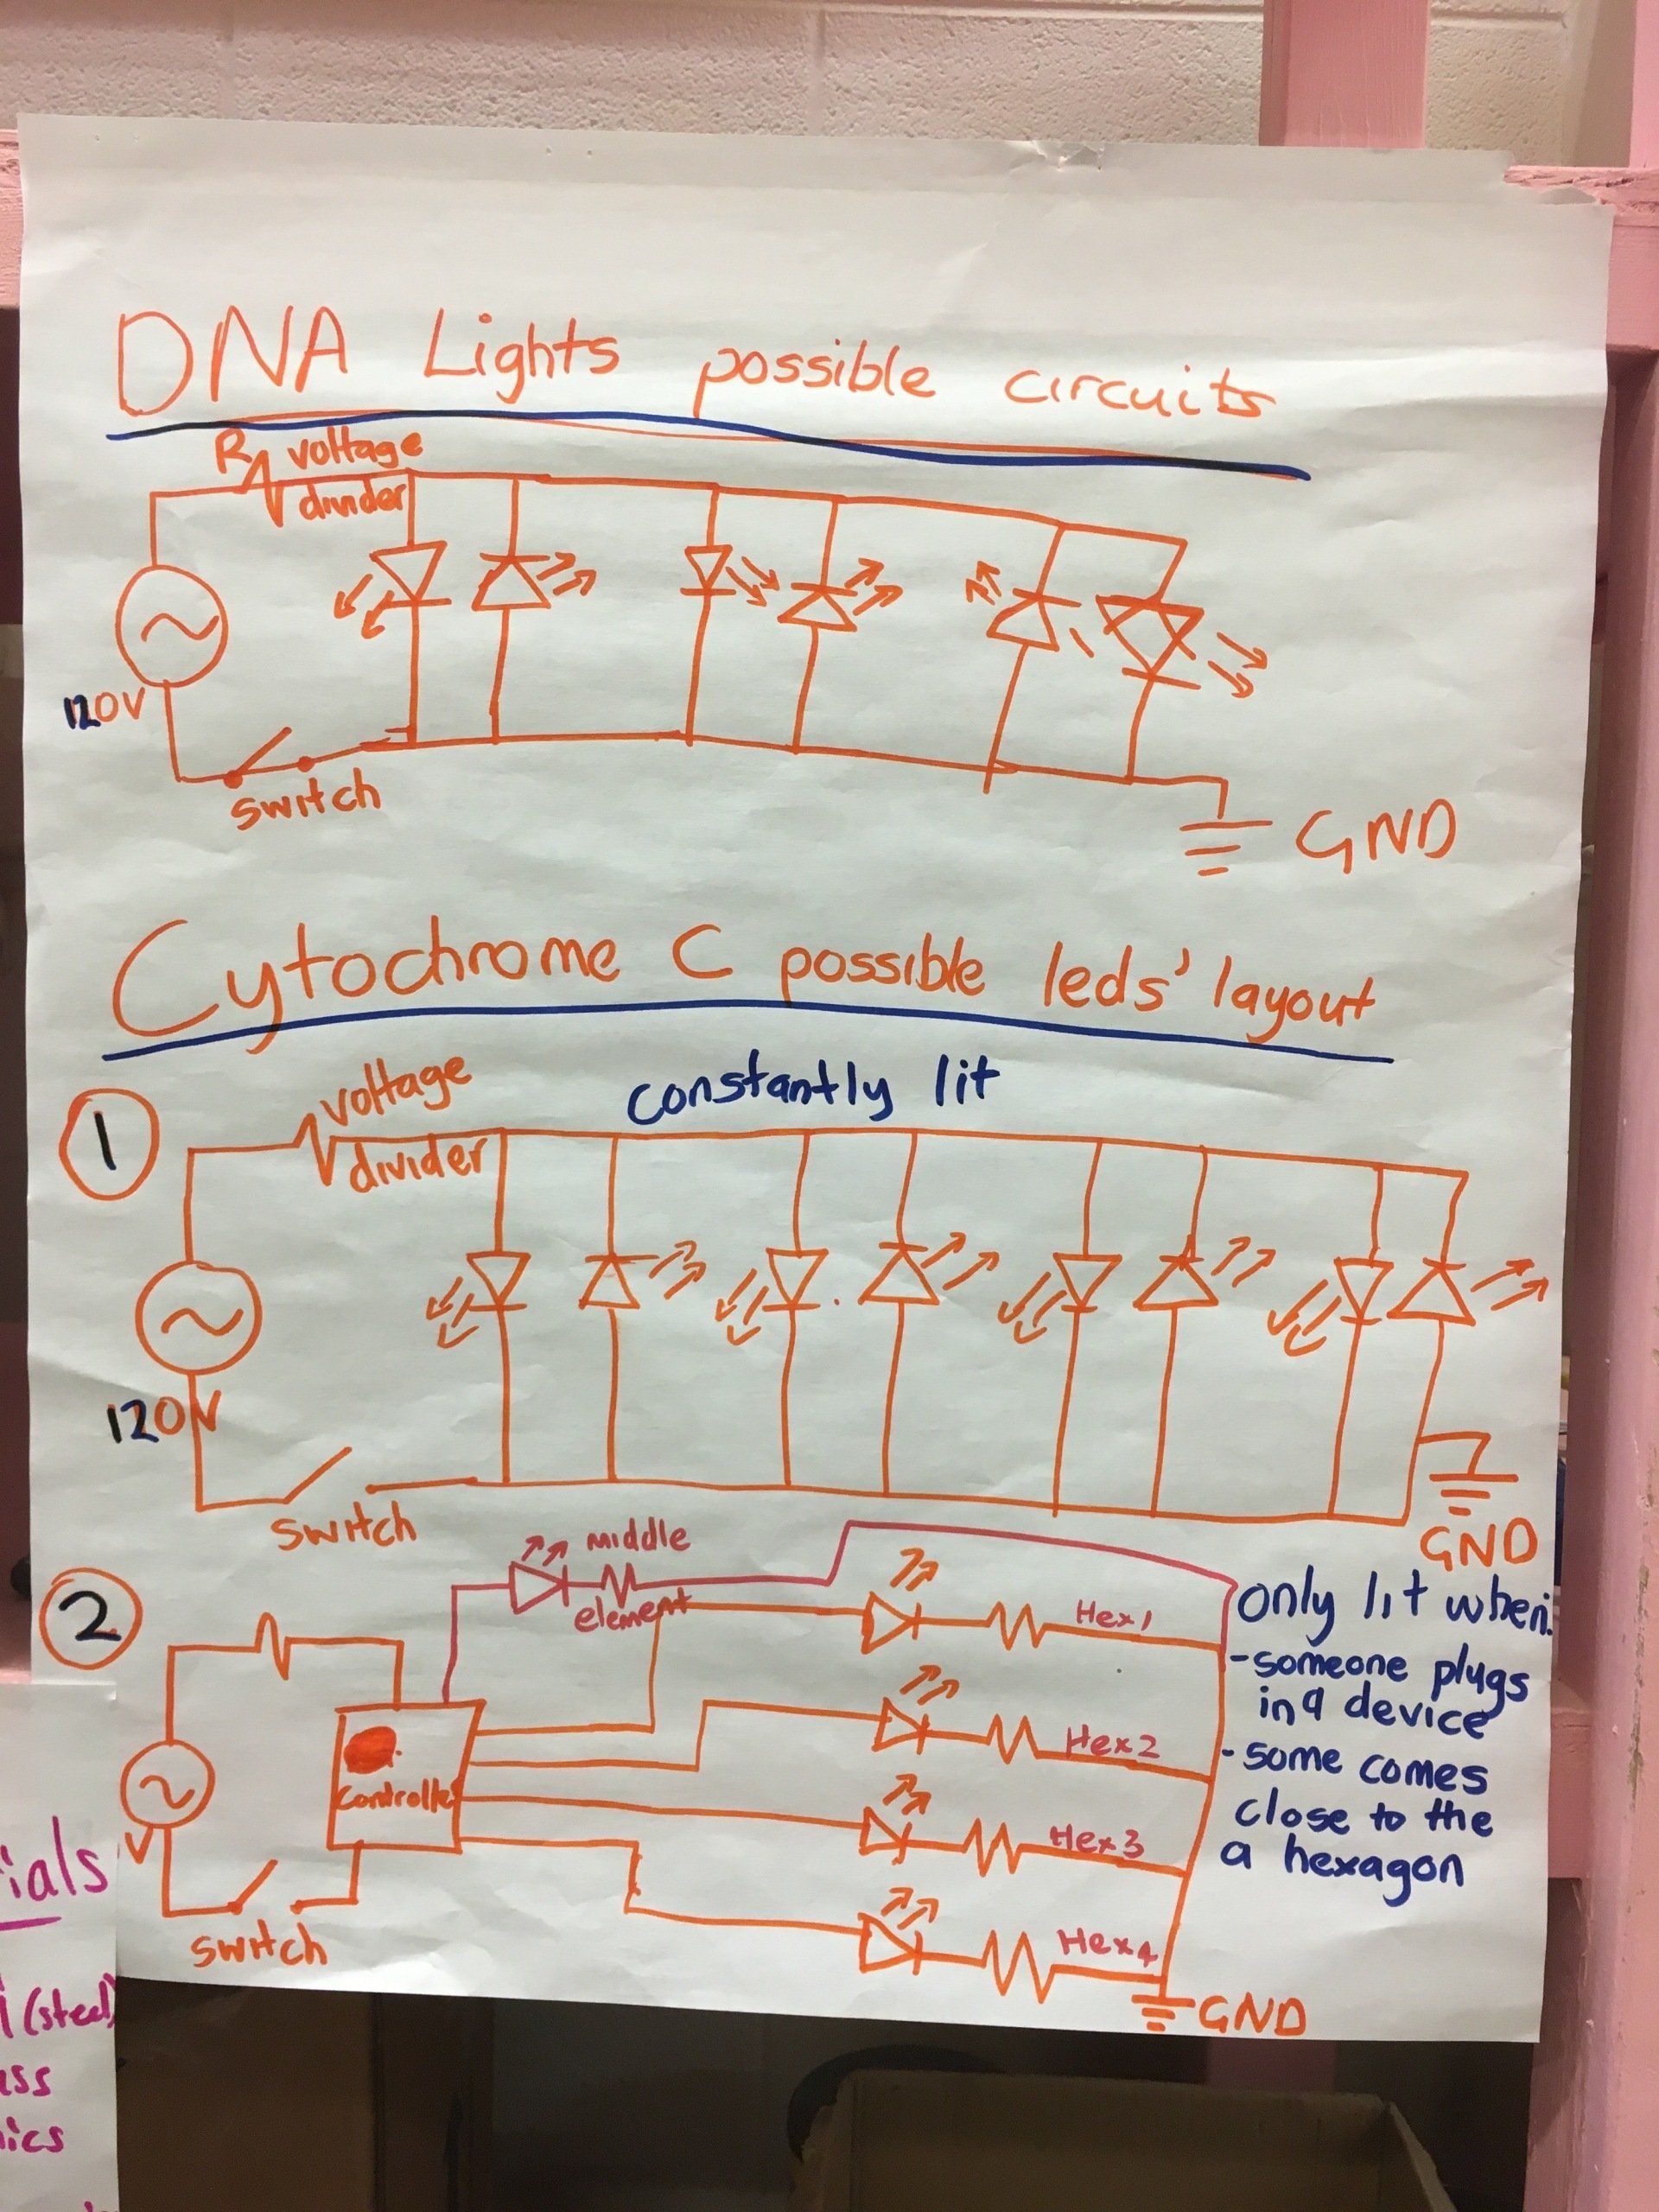 DNA Lights possible circuits
R voltage
divider
120V
switch
GND
Cytochrome C possible leds' layout
1
voltage
divider
constantly lit
120V
switch
GND
2
middle
element
controller
V
switch
Hex1
Hex2
Hex3
Hex4
GND
only lit when:
-someone plugs
in a device
-some comes
close to the
a hexagon
ials
(steel)
ass
nics